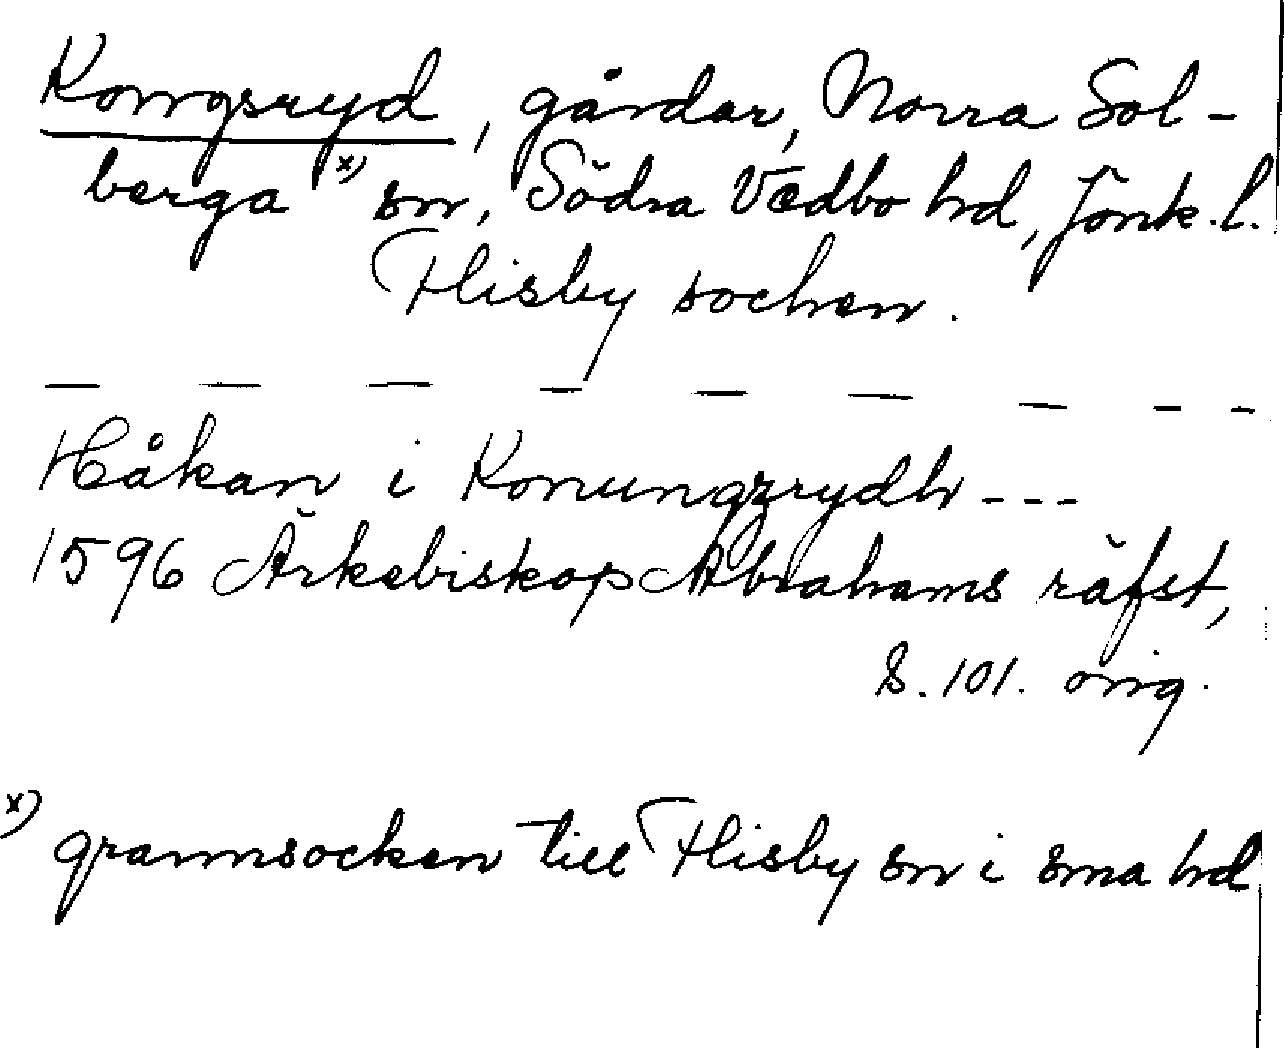 Kongsryd, gårdar, Norra Sol-
berga x) sn, Södra Vedbo hd, Jönk. l.
Flisby socken.
— — — — — — — — —
Håkan i Konungzrydh ---
1596 Ärkebiskop Abrahams räfst,
S. 101. orig.
x) grannsocken till Flisby sn i sma hd